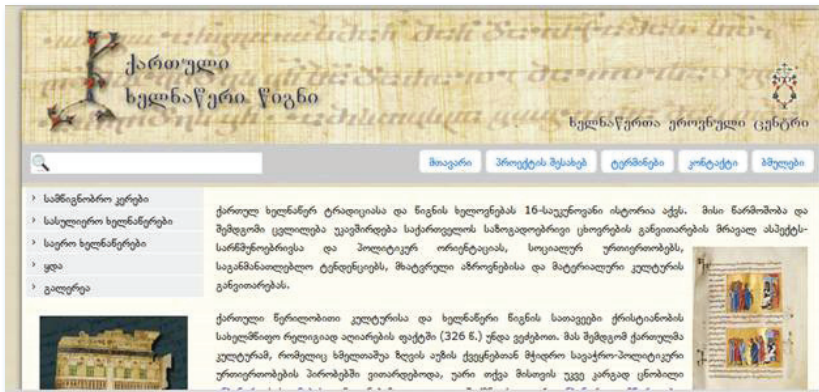 ქართული
ხელნაწერი წიგნი
ხელნაწერთა ეროვნული ცენტრი
მთავარი
პროექტის შესახებ
ტერმინები
კონტაქტი
ბმულები
სამწიგნობრო კერები
სასულიერო ხელნაწერები
საერო ხელნაწერები
ყდა
გალერეა
ქართულ ხელნაწერ ტრადიციასა და წიგნის ხელოვნებას 16-საუკუნოვანი ისტორია აქვს. მისი წარმოშობა და
შემდგომი ცვლილება უკავშირდება საქართველოს საზოგადოებრივი ცხოვრების განვითარების მრავალ ასპექტს-
სარწმუნოებრივსა და პოლიტიკურ ორიენტაციას, სოციალურ ურთიერთობებს,
საგანმანათლებლო ტენდენციებს, მხატვრული აზროვნებისა და მატერიალური კულტურის
განვითარებას.
ქართული წერილობითი კულტურისა და ხელნაწერი წიგნის სათავეები ქრისტიანობის
სახელმწიფო რელიგიად აღიარების ფაქტში (326 წ.) უნდა ვეძებოთ. მას შემდგომ ქართულმა
კულტურამ, რომელიც ხმელთაშუა ზღვის აუზის ქვეყნებთან მჭიდრო სავაჭრო-პოლიტიკური
ურთიერთობების პირობებში ვითარდებოდა, უარი თქვა მისთვის უკვე კარგად ცნობილი